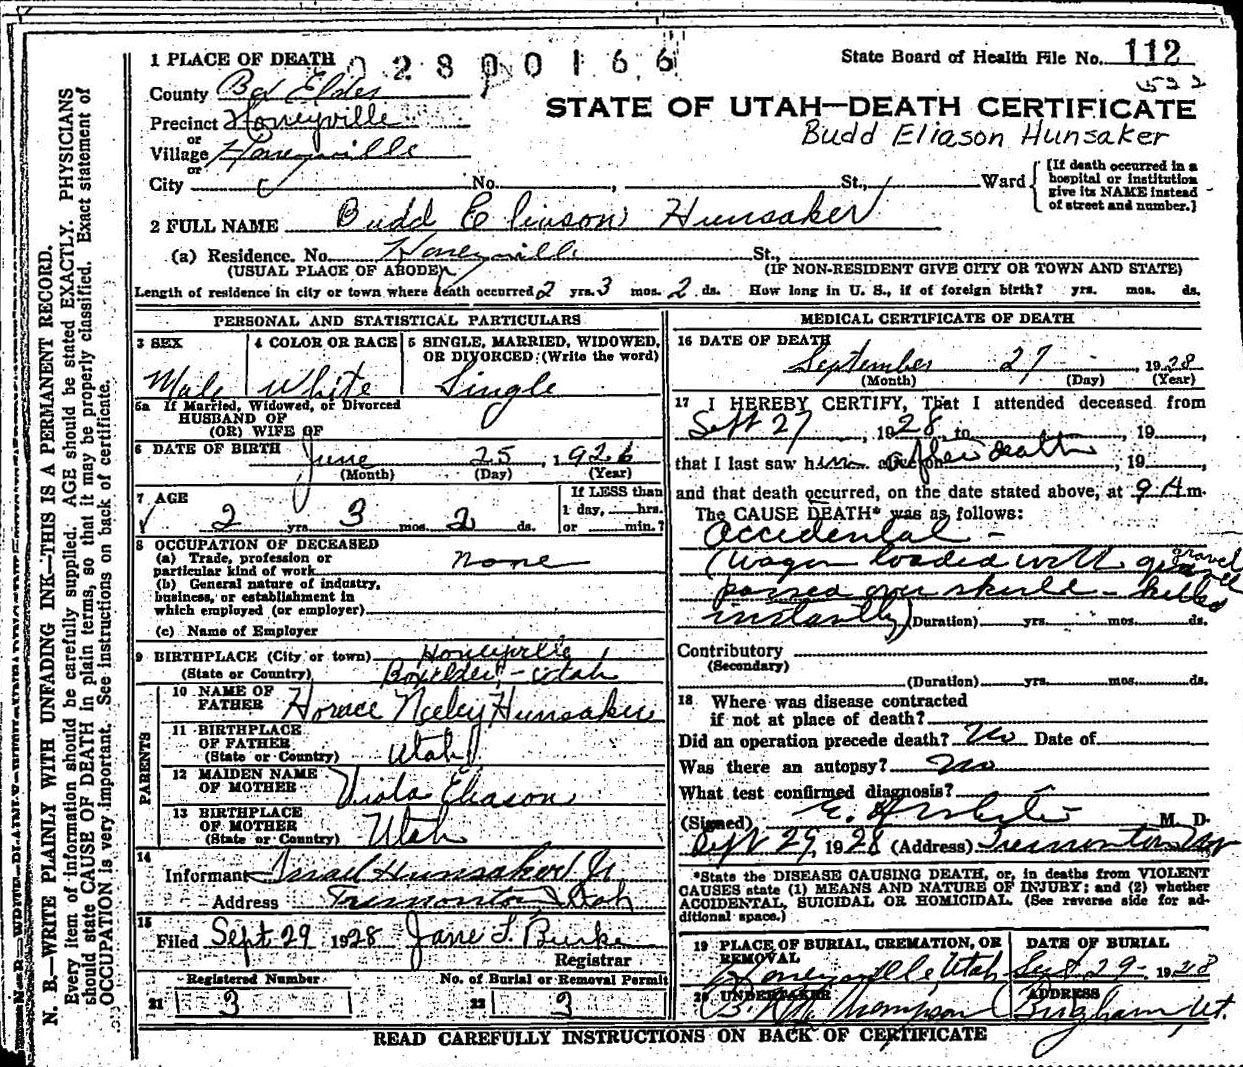 1 PLACE OF DEATH
02800166
State Board of Health File No. 112
522
County Box Elder
STATE OF UTAH—DEATH CERTIFICATE
Precinct Honeyville
Budd Eliason Hunsaker
or
Village Honeyville
or
City No. , St., Ward
[If death occurred in a hospital or institution give its NAME instead of street and number.]
2 FULL NAME Budd Eliason Hunsaker
(a) Residence. No. Honeyville St.,
(USUAL PLACE OF ABODE) (IF NON-RESIDENT GIVE CITY OR TOWN AND STATE)
Length of residence in city or town where death occurred 2 yrs. 3 mos. 2 ds. How long in U. S., if of foreign birth? yrs. mos. ds.
PERSONAL AND STATISTICAL PARTICULARS
3 SEX 4 COLOR OR RACE 5 SINGLE, MARRIED, WIDOWED, OR DIVORCED (Write the word)
Male White Single
5a If Married, Widowed, or Divorced
HUSBAND OF
(OR) WIFE OF
6 DATE OF BIRTH June 25, 1926
(Month) (Day) (Year)
7 AGE
2 yrs. 3 mos. 2 ds.
If LESS than
1 day, hrs.
or min.?
8 OCCUPATION OF DECEASED
(a) Trade, profession or
particular kind of work none
(b) General nature of industry,
business, or establishment in
which employed (or employer)
(c) Name of Employer
9 BIRTHPLACE (City or town) Honeyville
(State or Country) Utah
PARENTS
10 NAME OF FATHER Horace Neeley Hunsaker
11 BIRTHPLACE OF FATHER
(State or Country) Utah
12 MAIDEN NAME OF MOTHER Viola Eliason
13 BIRTHPLACE OF MOTHER
(State or Country) Utah
14
Informant Israel Hunsaker Jr
Address Tremonton Utah
15
Filed Sept 29 1928 Jane L. Burke
Registrar
Registered Number No. of Burial or Removal Permit
21 3 22 3
MEDICAL CERTIFICATE OF DEATH
16 DATE OF DEATH
September 27, 1928
(Month) (Day) (Year)
17 I HEREBY CERTIFY, That I attended deceased from
Sept 27, 1928, to , 19
that I last saw him after death, 19
and that death occurred, on the date stated above, at 9 A m.
The CAUSE DEATH* was as follows:
Accidental -
(Wagon loaded with gravel
passed over skull - killed
instantly) (Duration) yrs. mos. ds.
Contributory
(Secondary)
(Duration) yrs. mos. ds.
18 Where was disease contracted
if not at place of death?
Did an operation precede death? No Date of
Was there an autopsy? No
What test confirmed diagnosis?
(Signed) E. M. D.
Sept 29, 1928 (Address) Tremonton
*State the DISEASE CAUSING DEATH, or, in deaths from VIOLENT
CAUSES state (1) MEANS AND NATURE OF INJURY; and (2) whether
ACCIDENTAL, SUICIDAL OR HOMICIDAL. (See reverse side for ad-
ditional space.)
19 PLACE OF BURIAL, CREMATION, OR REMOVAL DATE OF BURIAL
Honeyville, Utah Sept 29 1928
20 UNDERTAKER ADDRESS
Thompson Brigham, Ut.
READ CAREFULLY INSTRUCTIONS ON BACK OF CERTIFICATE
N. B.—WRITE PLAINLY WITH UNFADING INK—THIS IS A PERMANENT RECORD.
Every item of information should be carefully supplied. AGE should be stated EXACTLY. PHYSICIANS
should state CAUSE OF DEATH in plain terms, so that it may be properly classified. Exact statement of
OCCUPATION is very important. See instructions on back of certificate.